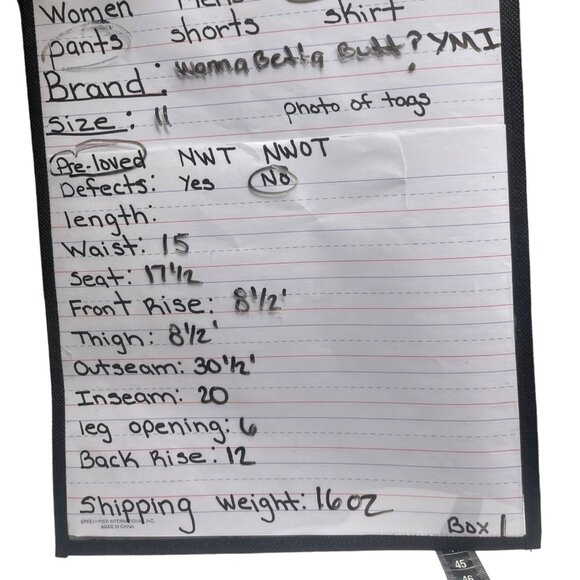 Women Mens
pants shorts skirt
Brand: Wanna Betta Butt? YMI
Size: 11 photo of tags
Pre-loved NWT NWOT
Defects: Yes No
length:
Waist: 15
Seat: 17 1/2
Front Rise: 8 1/2'
Thigh: 8 1/2'
Outseam: 30 1/2'
Inseam: 20
leg opening: 6
Back Rise: 12
Shipping Weight: 16 oz
MADE IN CHINA
Box 1
45
46